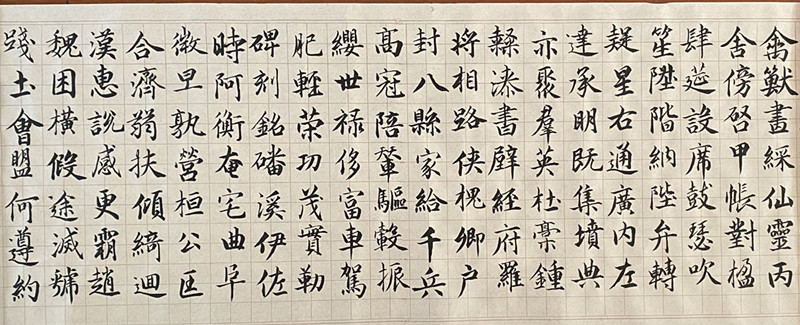 禽獸畫綵仙靈丙
舍傍啓甲帳對楹
肆筵設席鼓瑟吹
笙陞階納陛弁轉
疑星右通廣内左
達承明既集墳典
亦聚羣英杜稾鍾
隸漆書壁經府羅
将相路俠槐卿户
封八縣家給千兵
高冠陪輦驅轂振
纓世禄侈富車駕
肥輕策功茂實勒
碑刻銘磻溪伊佐
時阿衡奄宅曲阜
微旦孰營桓公匡
合濟弱扶傾綺迴
漢惠說感更霸趙
魏困橫假途滅虢
踐土會盟何遵約